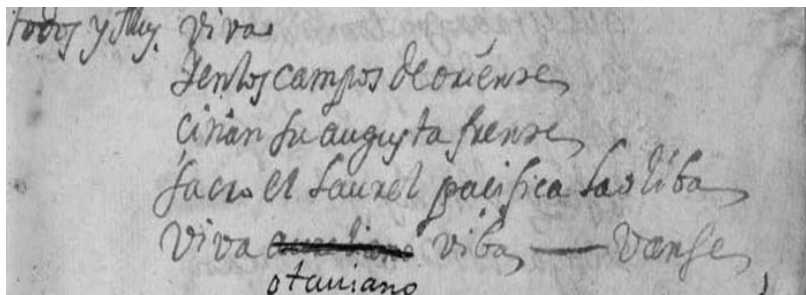 todos y Mus. Viva
Yen los campos de oriente
ciñan su augusta frente
sacro el laurel pacifica la oliba
Viva aureliano viba — vanse
otauiano